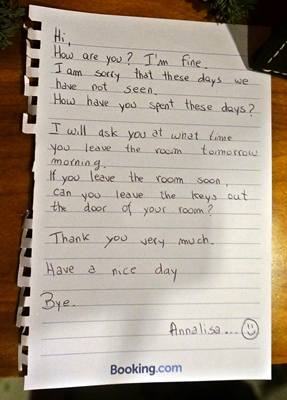 Hi,
How are you? I'm fine.
I am sorry that these days we
have not seen.
How have you spent these days?
I will ask you at what time
you leave the room tomorrow
morning.
If you leave the room soon,
can you leave the keys out
the door of your room?
Thank you very much.
Have a nice day
Bye.
Annalisa...
Booking.com